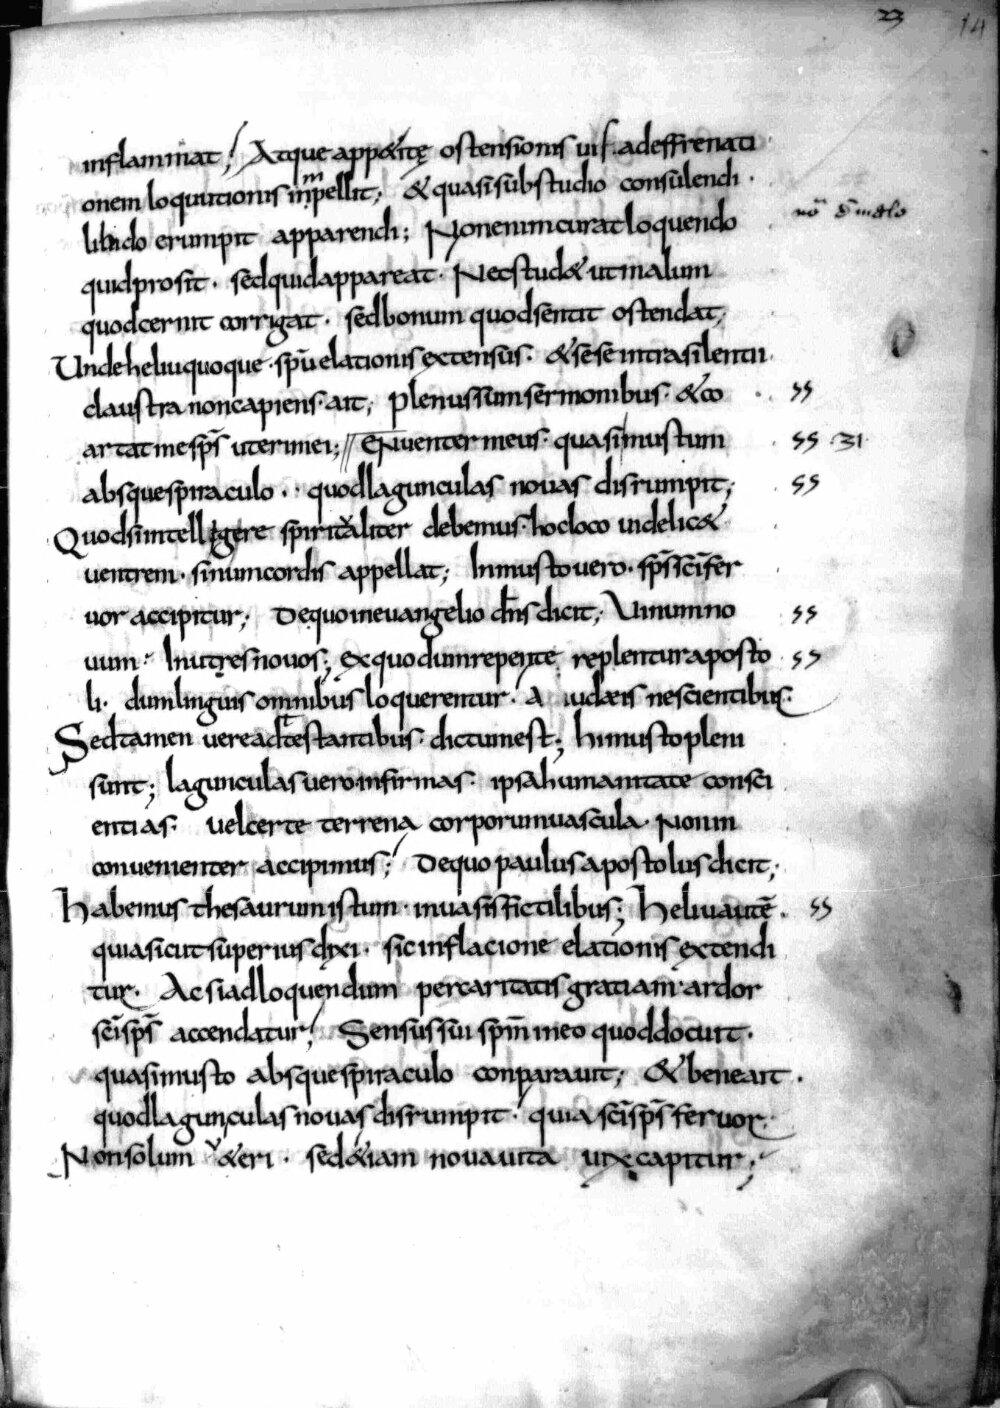 23 14
inflammat; Atque app&itę ostensionis uis adeffrenati
onem loquutionis inpellit; & quasi sub studio consulendi ·
libido erumpit apparendi; Non enim curat loquendo
quid prosit · sed quid appareat · Nec stud& ut malum
quod cernit corrigat · sed bonum quod sentit ostendat;
Unde heliu quoque · spū elationis extensus · & sese intra silentii
claustra non capiens · ait; Plenus sum sermonibus · & co ss
artat me sp̄s uteri mei; En uenter meus · quasi mustum ss 31
absque spiraculo · quod lagunculas nouas disrumpit; ss
Quod si intellegere spiritaliter debemus · hoc loco uidelic&
uentrem · sinum cordis appellat; In musto uero · sp̄s sc̄i fer
uor accipitur; De quo in euangelio dn̄s dicit; Uinum no ss
uum · In utres nouos; ex quo dum repente replentur aposto ss
li · dum linguis omnibus loquerentur · A iudæis nescientibus ·
Sed tamen uere adtestantibus · dictum est; hi musto pleni
sunt; lagunculas uero infirmas · ipsa humanitate consci
entias · uel certe terrena corporum uascula · Non in
conuenienter accipimus; De quo paulus apostolus dicit;
Habemus thesaurum istum · in uasis fictilibus; Heliu autē · ss
quia sicut superius dixi · sic inflacione elationis extendi
tur · Ac si ad loquendum per caritatis gratiam · ardor
sc̄i sp̄s accendatur; Sensus sui spm̄ meo quod docuit ·
quasi musto absque spiraculo conparauit; & bene ait ·
quod lagunculas nouas disrumpit · quia sc̄i sp̄s feruor ·
Non solum u&eri · sed &iam noua uita uix capitur;